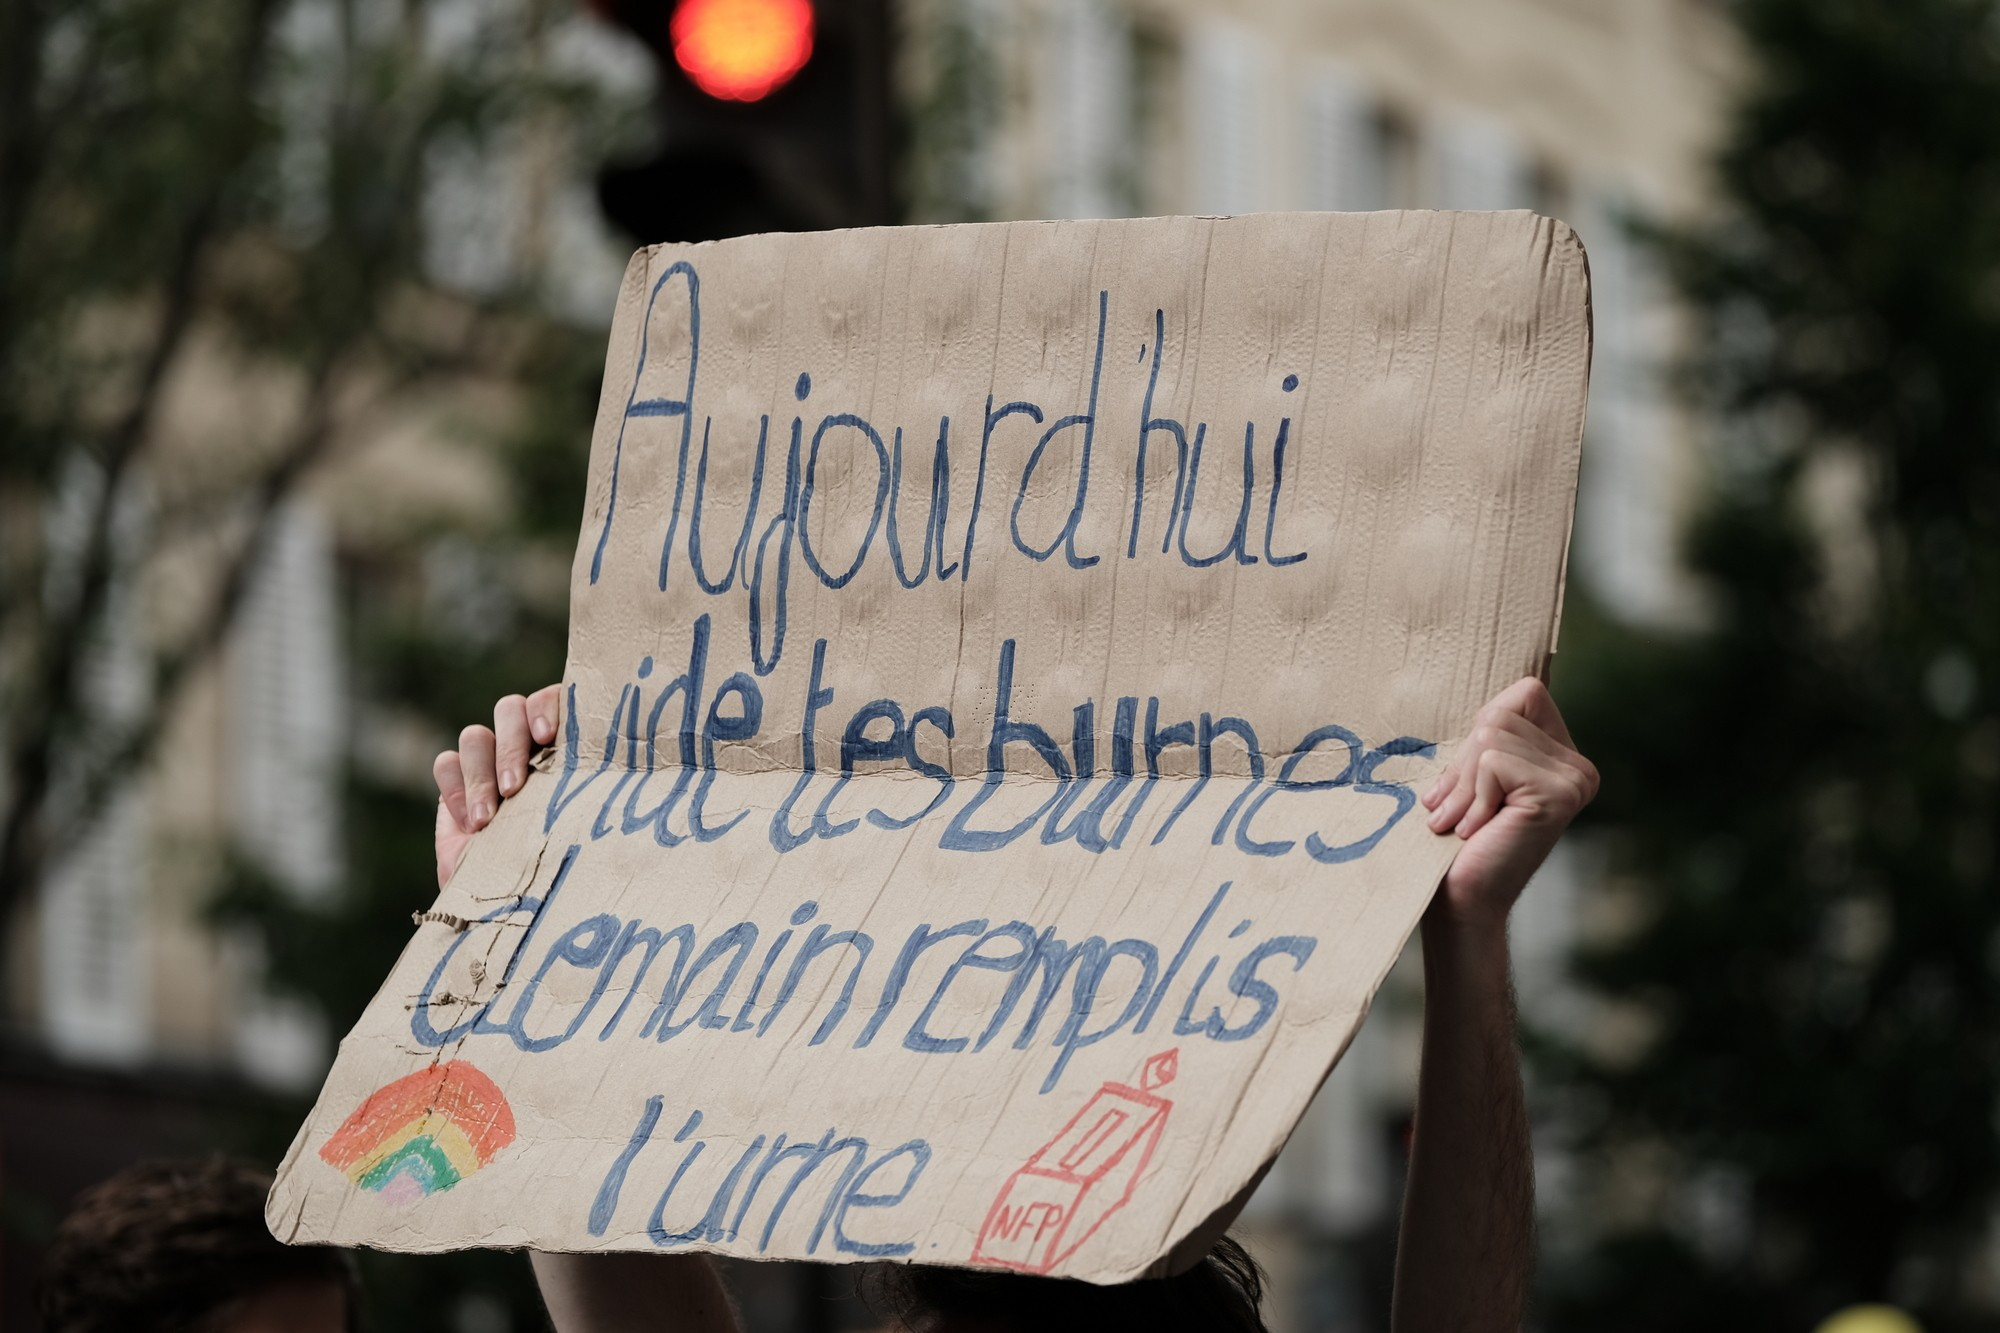 Aujourd'hui
vide tes burnes
demain remplis
l'urne.
NFP